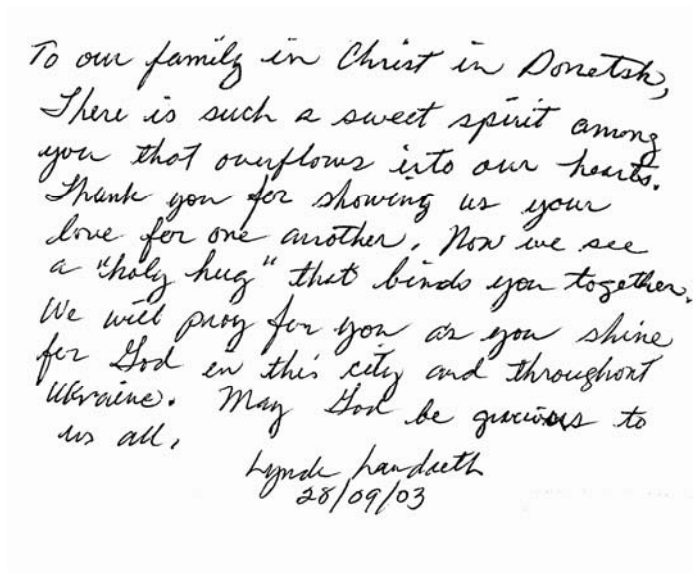 To our family in Christ in Donetsk,
There is such a sweet spirit among
you that overflows into our hearts.
Thank you for showing us your
love for one another. Now we see
a "holy hug" that binds you together.
We will pray for you as you shine
for God in this city and throughout
Ukraine. May God be gracious to
us all.
Lynda Landreth
28/09/03